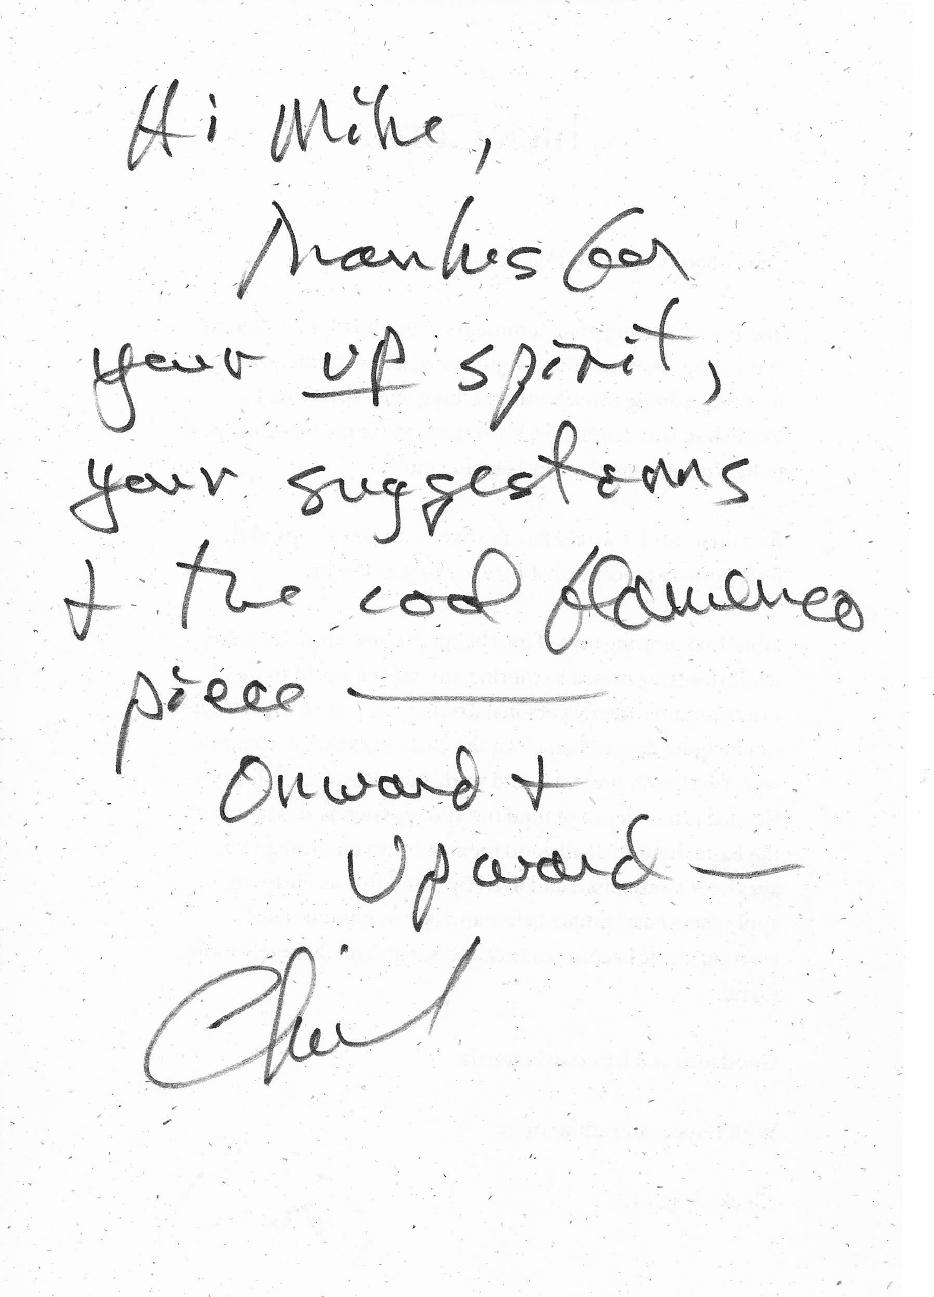 Hi Mike,
Thanks for
your up spirit,
your suggestions
+ the cool flamenco
piece —
Onward +
Upward —